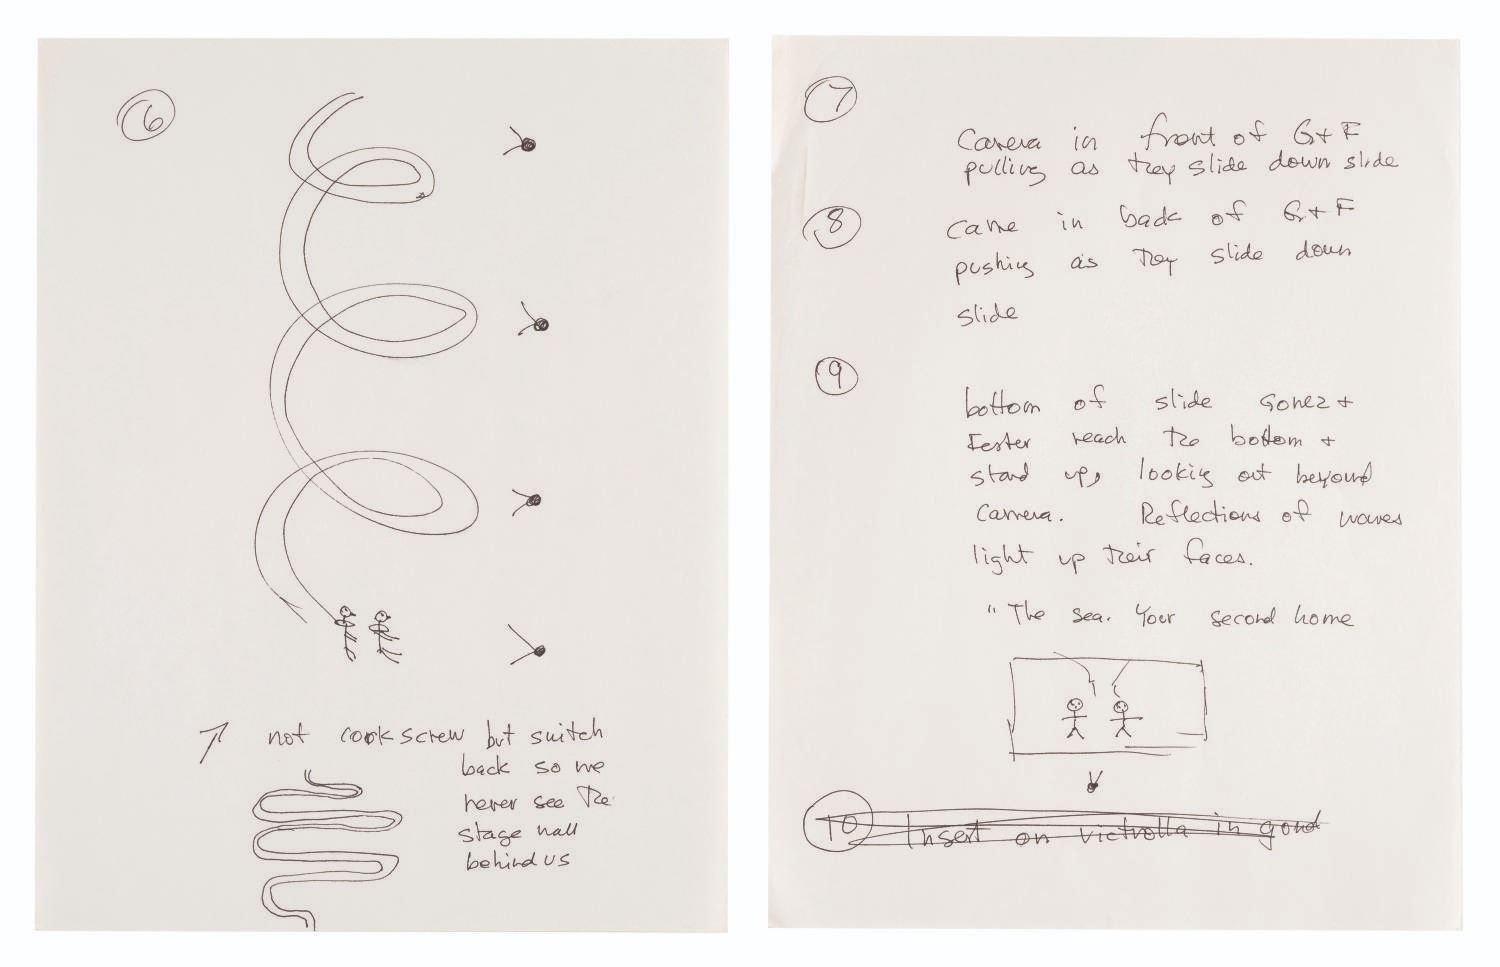 6
not corkscrew but switch
back so we
never see the
stage wall
behind us
7
Camera in front of G+F
pulling as they slide down slide
8
Came in back of G+F
pushing as they slide down
slide
9
bottom of slide Gomez +
Fester reach the bottom +
stand up, looking out beyond
camera. Reflections of waves
light up their faces.
"The sea. Your second home
10 Insert on victrolla in gond